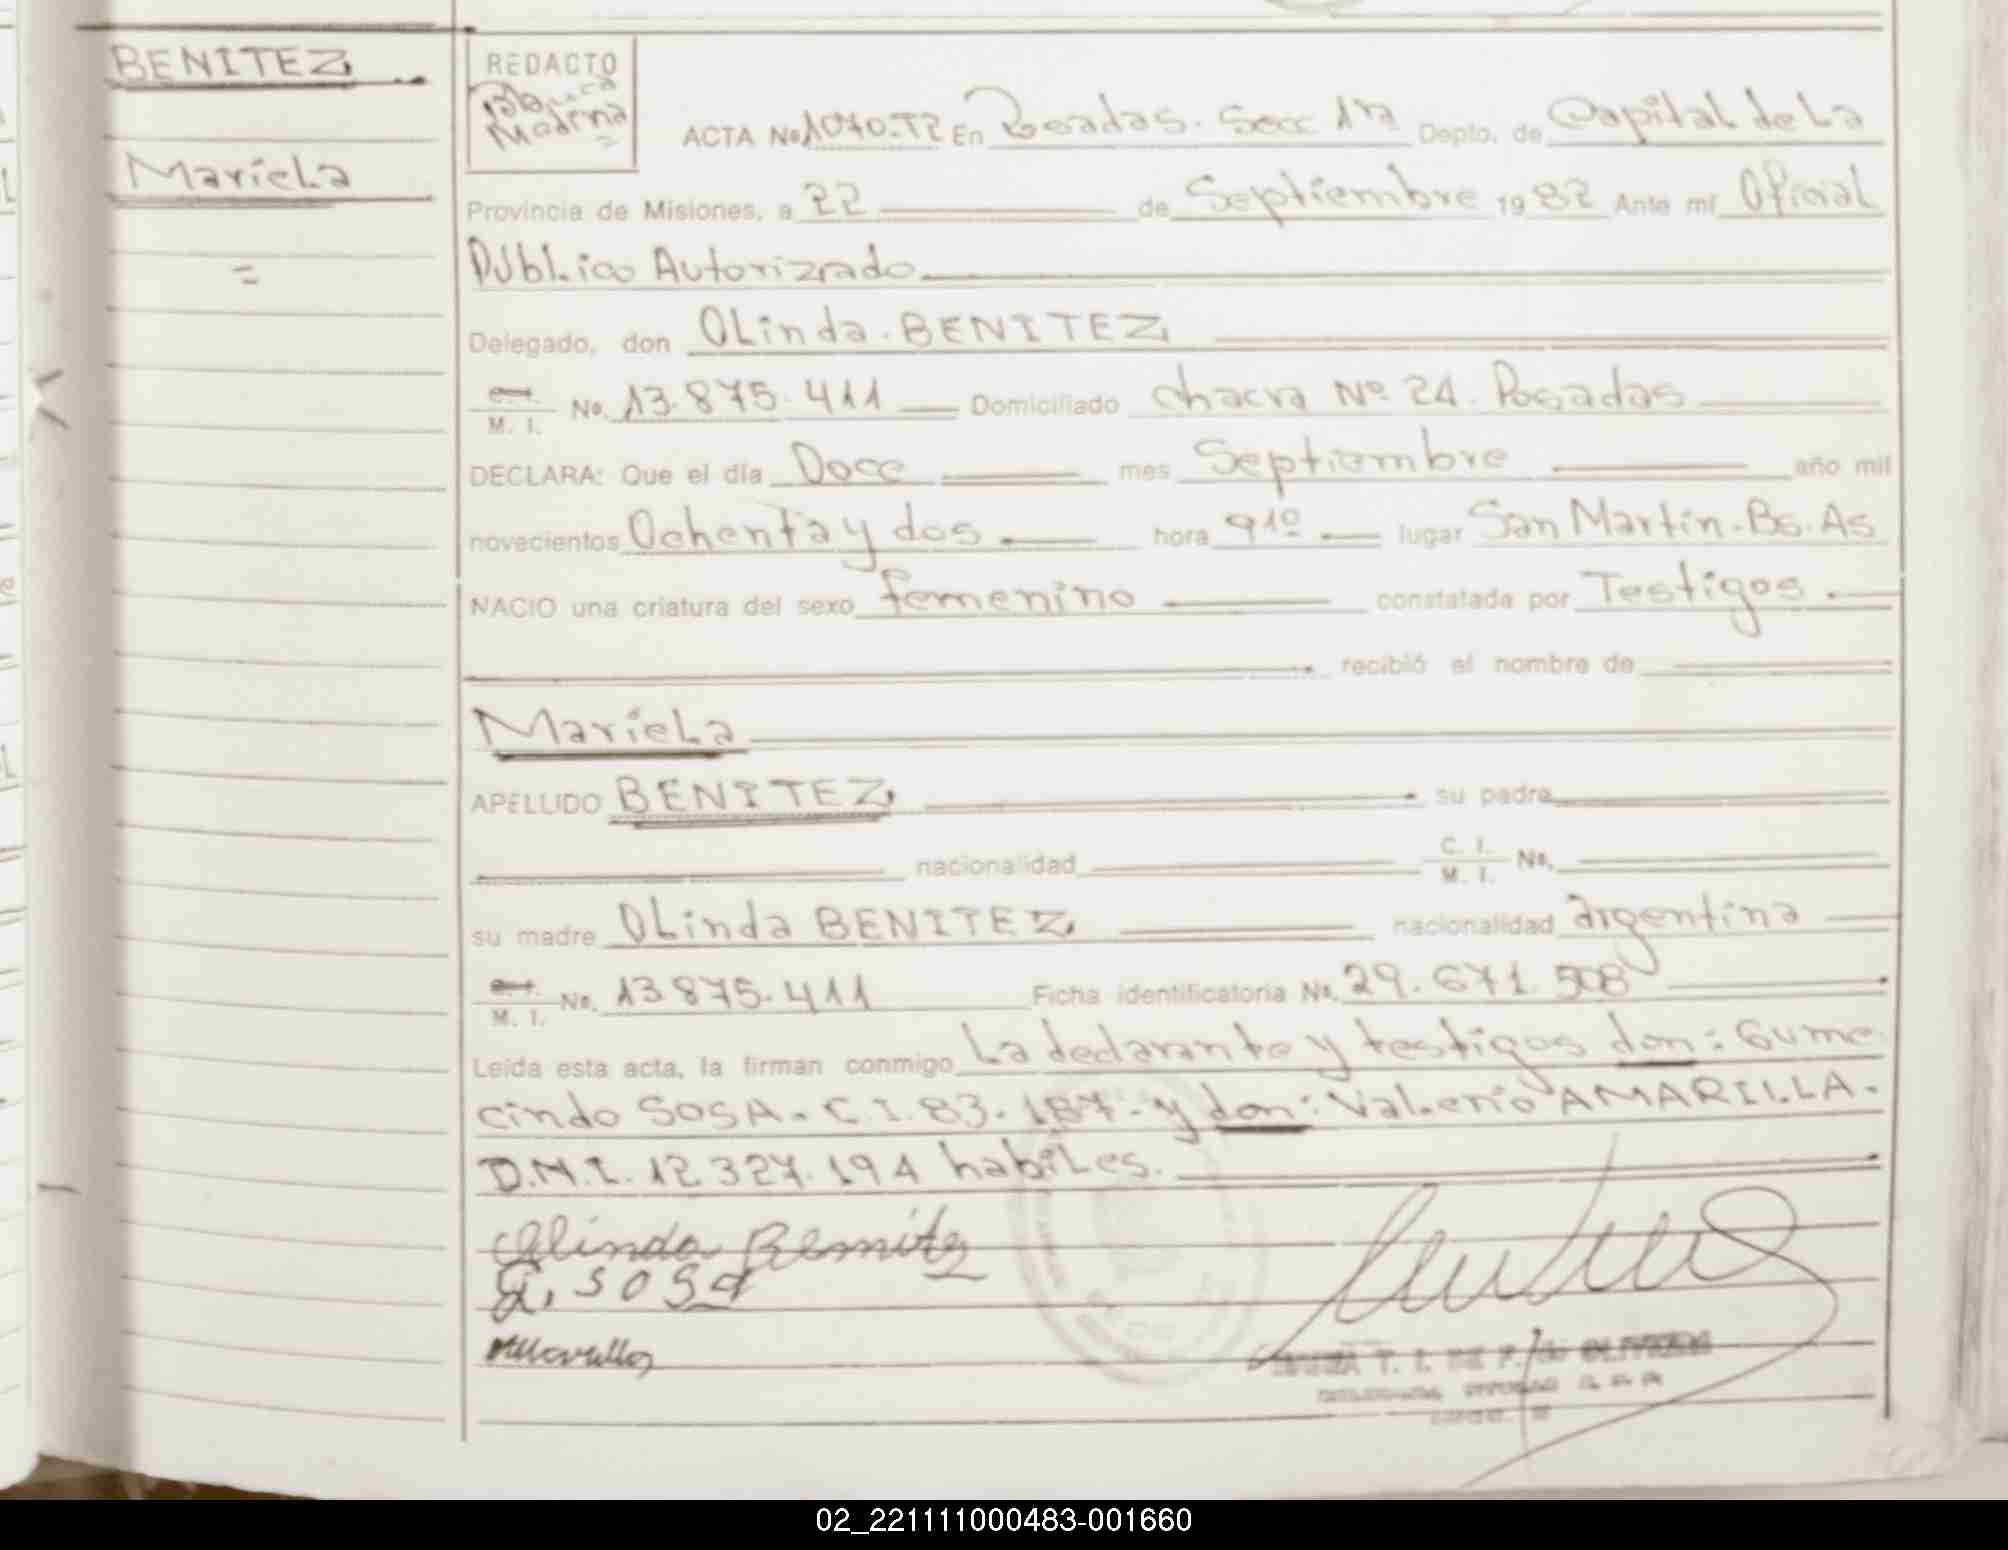 BENITEZ
Mariela
=
REDACTO
Blanca
Medina
ACTA No 1070.T2 En Posadas. Secc 1ra Depto. de Capital de La
Provincia de Misiones, a 22 de Septiembre 1982 Ante mí Oficial
Público Autorizado
Delegado, don OLinda. BENITEZ
M. I. No. 13.875.411 Domiciliado chacra Nº 24. Posadas
DECLARA: Que el día Doce mes Septiembre año mil
novecientos Ochenta y dos hora 9 10 lugar San Martín. Bs. As
NACIO una criatura del sexo femenino constatada por Testigos
recibió el nombre de
Mariela
APELLIDO BENITEZ su padre
nacionalidad C. I. M. I. No.
su madre OLinda BENITEZ nacionalidad argentina
M. I. No. 13 875.411 Ficha identificatoria No. 29.671.508
Leída esta acta, la firman conmigo La declarante y testigos don: Gume
cindo SOSA. C.I. 83.187- y don: Valerio AMARILLA.
D.N.I. 12 327.194 habiles.
Olinda Benitez
G. SOSA
T. I. DE F. de OLIVEIRA
02_221111000483-001660